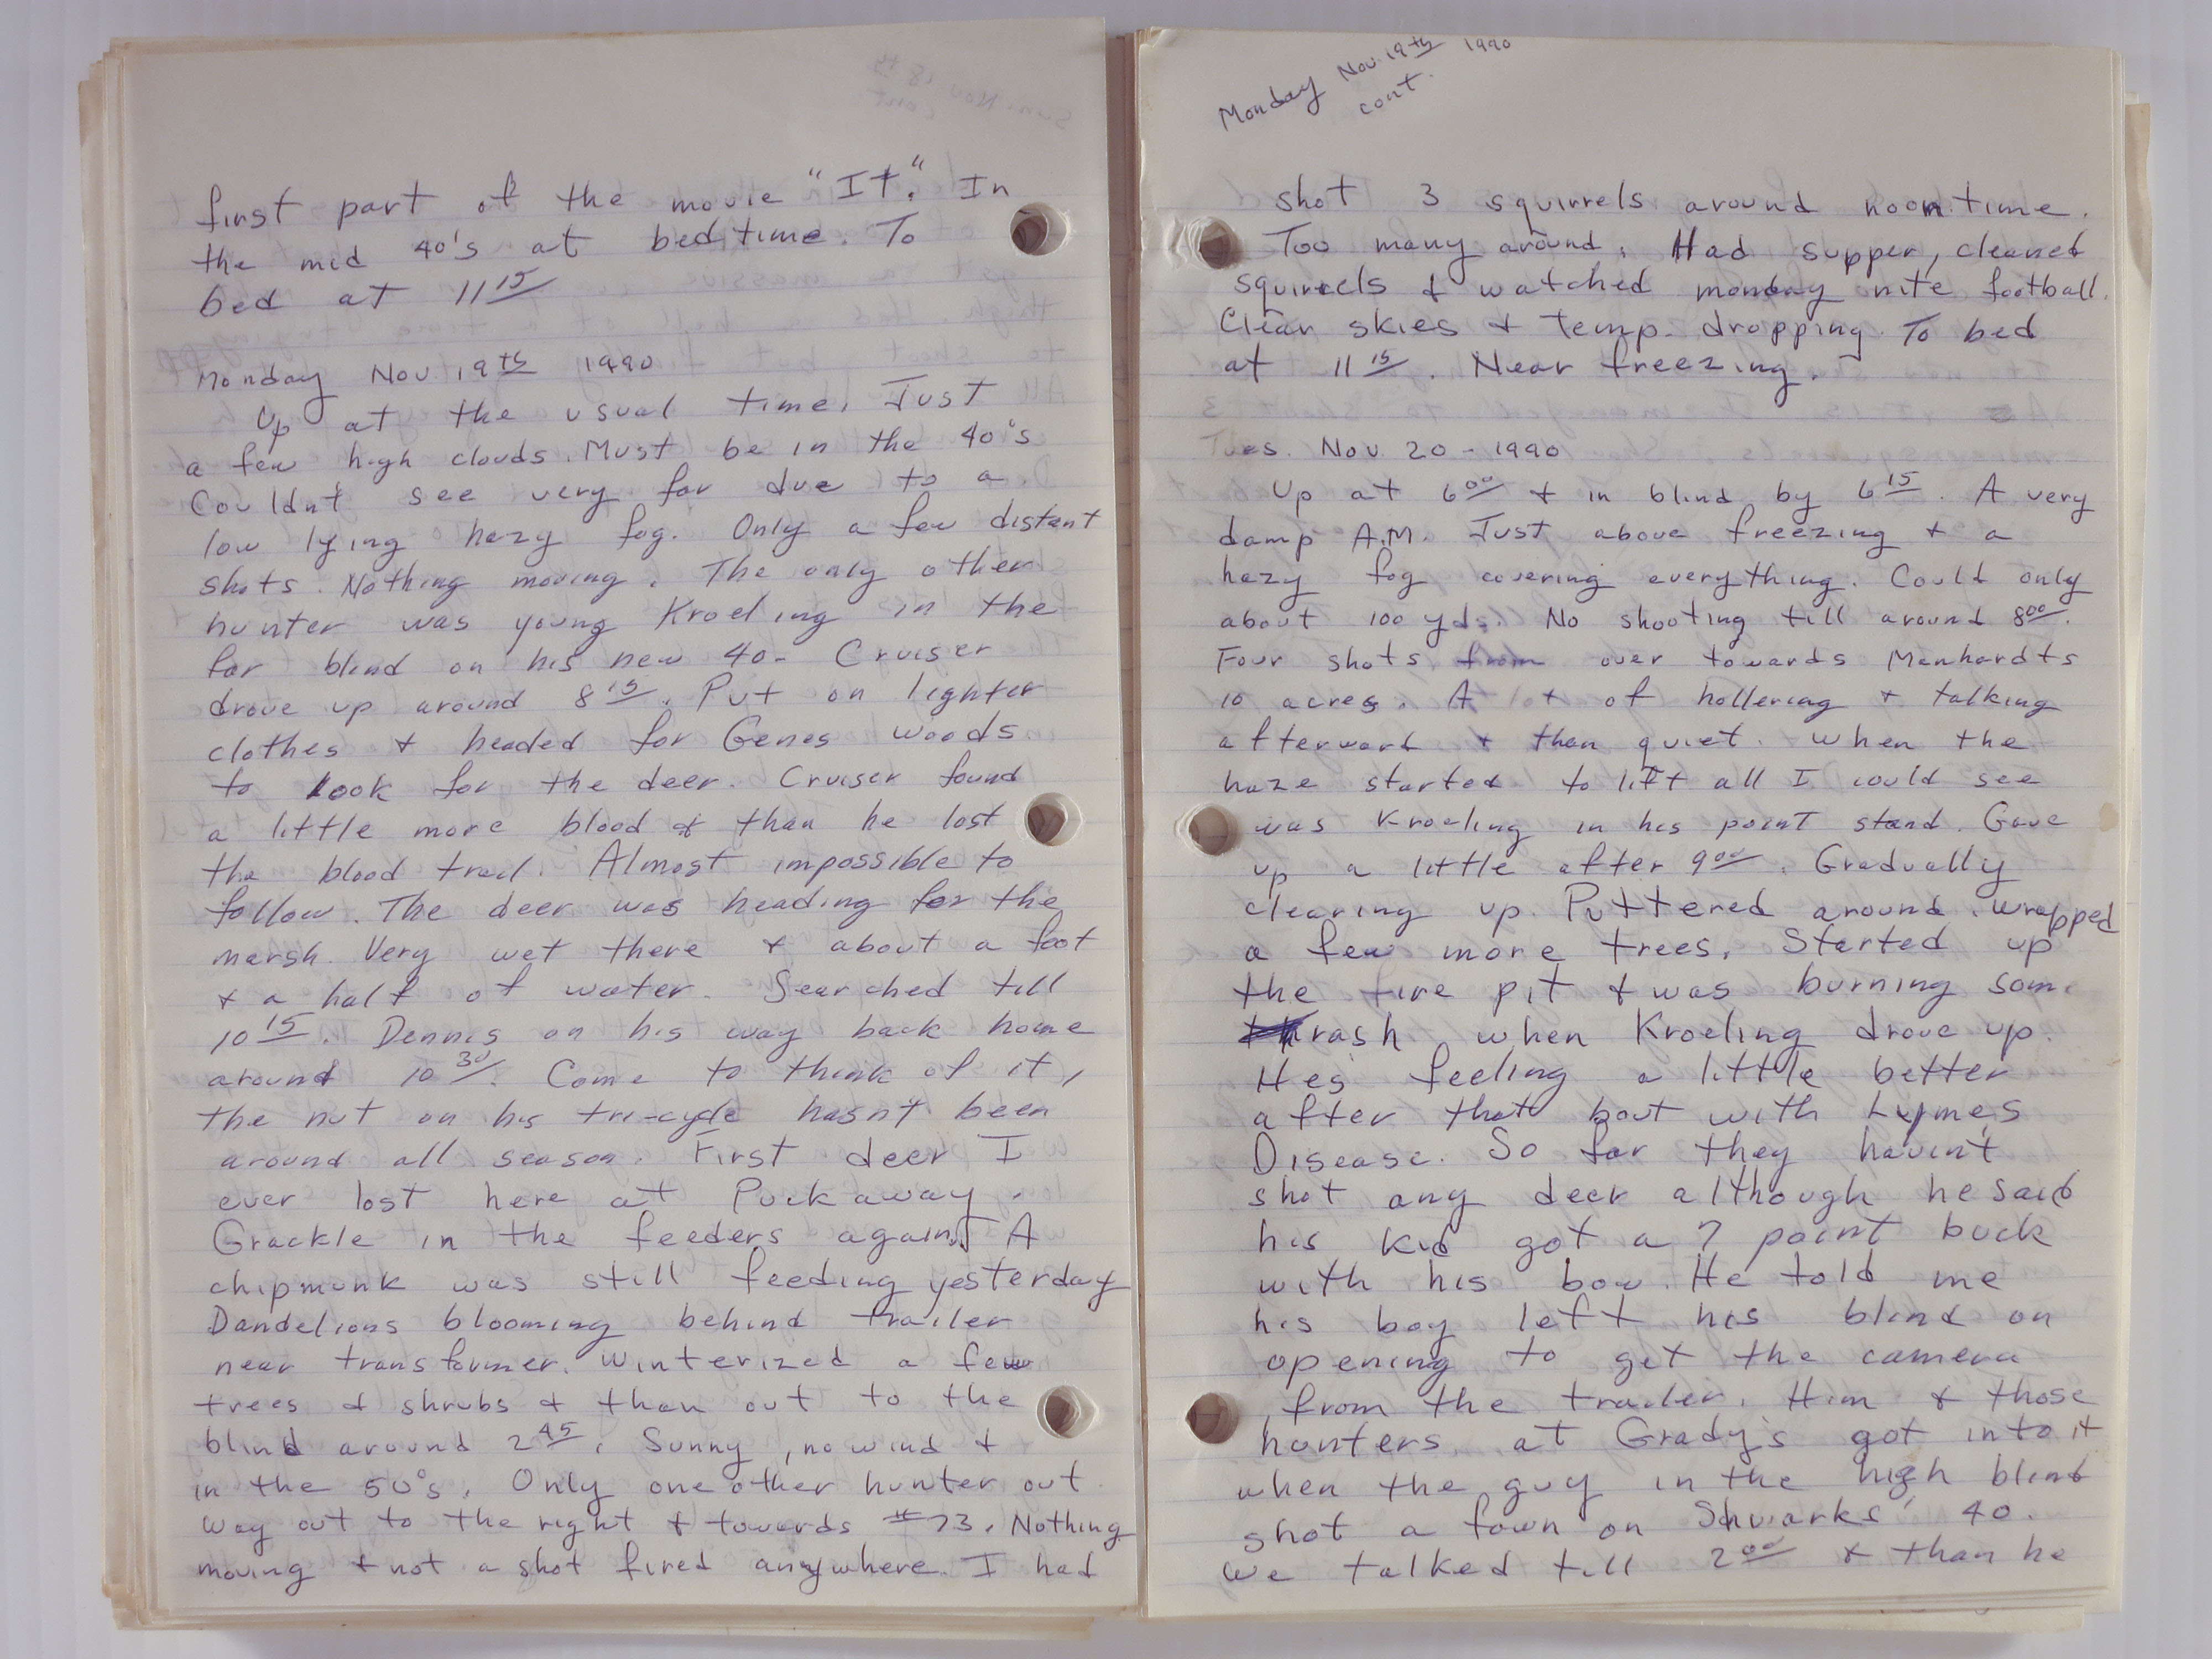 first part of the movie "It." In
the mid 40's at bedtime. To
bed at 11 15
Monday Nov. 19th 1990
Up at the usual time. Just
a few high clouds. Must be in the 40's
Couldn't see very far due to a
low lying hazy fog. Only a few distant
shots. Nothing moving. The only other
hunter was young Kroeling in the
far blind on his new 40- Cruiser
drove up around 8 15. Put on lighter
clothes & headed for Genes woods
to look for the deer. Cruiser found
a little more blood & than he lost
the blood trail. Almost impossible to
follow. The deer was heading for the
marsh. Very wet there & about a foot
& a half of water. Searched till
10 15. Dennis on his way back home
around 10 30. Come to think of it,
the nut on his tri-cycle hasn't been
around all season. First deer I
ever lost here at Puckaway.
Grackle in the feeders again. A
chipmunk was still feeding yesterday
Dandelions blooming behind trailer
near transformer. Winterized a few
trees & shrubs & than out to the
blind around 2 45. Sunny, no wind &
in the 50's. Only one other hunter out
way out to the right & towards #73. Nothing
moving & not a shot fired anywhere. I had
Monday Nov. 19th 1990
cont.
shot 3 squirrels around noontime.
Too many around. Had supper, cleaned
squirrels & watched monday nite football.
Clear skies & temp. dropping. To bed
at 11 15. Near freezing.
Tues. Nov. 20 - 1990
Up at 6 00 & in blind by 6 15. A very
damp A.M. Just above freezing & a
hazy fog covering everything. Could only
about 100 yds. No shooting till around 8 00.
Four shots from over towards Menhardts
10 acres. A lot of hollering & talking
afterward & than quiet. When the
haze started to lift all I could see
was Kroeling in his point stand. Gave
up a little after 9 00. Gradually
clearing up. Puttered around. Wrapped
a few more trees. Started up
the fire pit & was burning some
trash when Kroeling drove up.
Hes feeling a little better
after that bout with Lymes
Disease. So far they havin't
shot any deer although he said
his kid got a 7 point buck
with his bow. He told me
his boy left his blind on
opening to get the camera
from the trailer. Him & those
hunters at Grady's got into it
when the guy in the high blind
shot a fawn on 40.
We talked till 2 00 & than he